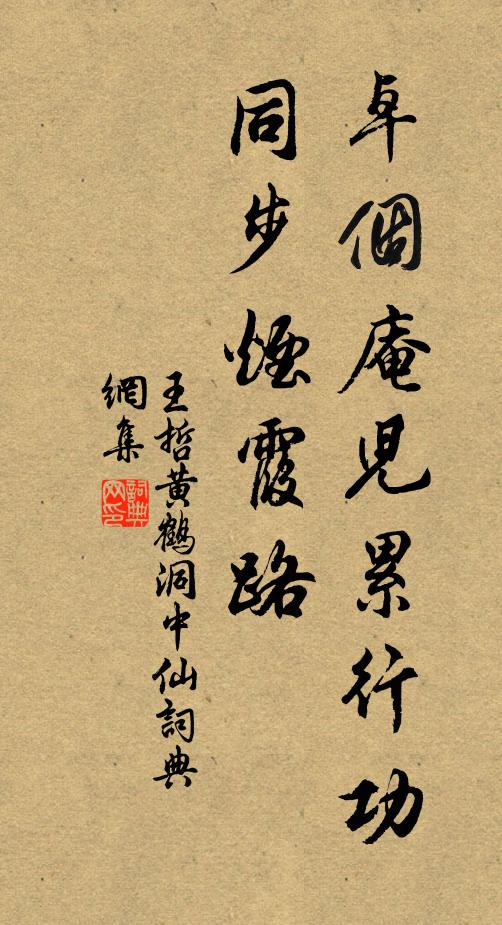 卓個庵兒累行功
同步煙霞路
王哲黃鶴洞中仙詞典
網集
詞典網印